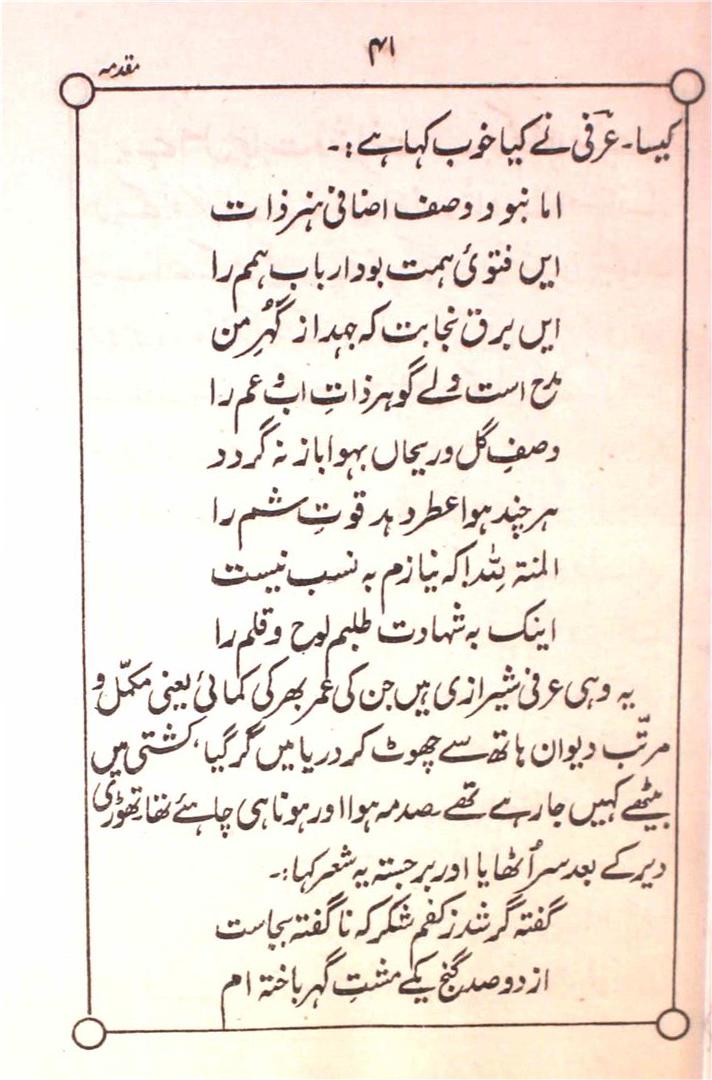 ۴۱
مقدمہ
کیسا۔ عرفی نے کیا خوب کہا ہے:۔
اما نبود وصف اضافی ہنر ذات
ایں فتویٔ ہمت بود ارباب ہمم را
ایں برق نجابت کہ جہد از گہُرِ من
مدح است ولے گوہر ذاتِ اب و عم را
وصفِ گل و ریحاں بہوا باز نہ گردد
ہر چند ہوا عطر دہد قوتِ شم را
المنۃ للہ! کہ نیازم بہ نسب نیست
اینک بہ شہادت طلبم لوح و قلم را
یہ وہی عرفی شیرازی ہیں جن کی عمر بھر کی کمائی یعنی مکمّل و
مرتّب دیوان ہاتھ سے چھوٹ کر دریا میں گر گیا، کشتی میں
بیٹھے کہیں جا رہے تھے۔ صدمہ ہوا اور ہونا ہی چاہئے تھا، تھوڑی
دیر کے بعد سر اُٹھایا اور برجستہ یہ شعر کہا:۔
گفتہ گر شد ز کفم شکر کہ ناگفتہ بجاست
از دو صد گنج یکے مشتِ گہر باختہ ام